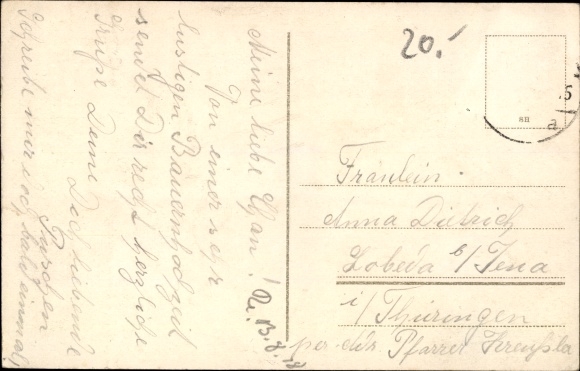 Meine liebe
Von einer sehr
lustigen Bauernhochzeit
sendet Dir recht herzliche
Grüße Deine
Dich liebende
Schreibe mir doch bald einmal
20.-
sn
5
a
Fräulein
Anna Dietrich
Lobeda b/Jena
i/Thüringen
per Adr. Pfarrer